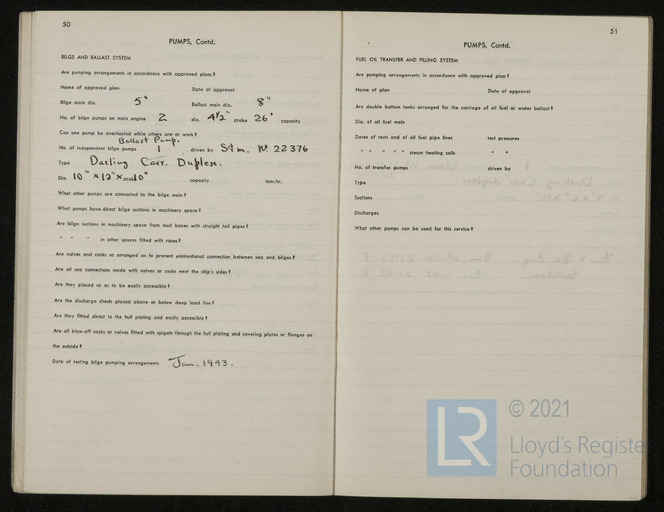 50
PUMPS, Contd.
BILGE AND BALLAST SYSTEM
Are pumping arrangements in accordance with approved plans?
Name of approved plan Date of approval
Bilge main dia. 5" Ballast main dia. 8"
No. of bilge pumps on main engine 2 dia. 4½" stroke 26" capacity
Can one pump be overhauled while others are at work?
Ballast Pump.
No. of independent bilge pumps 1 driven by Stm. Nº 22376
Type Darling Carr. Duplex.
Dia. 10" × 12" × 10" capacity tons/hr.
What other pumps are connected to the bilge main?
What pumps have direct bilge suctions in machinery space?
Are bilge suctions in machinery space from mud boxes with straight tail pipes?
" " " in other spaces fitted with roses?
Are valves and cocks so arranged as to prevent unintentional connection between sea and bilges?
Are all sea connections made with valves or cocks next the ship's sides?
Are they placed so as to be easily accessible?
Are the discharge chests placed above or below deep load line?
Are they fitted direct to the hull plating and easily accessible?
Are all blow-off cocks or valves fitted with spigots through the hull plating and covering plates or flanges on
the outside?
Date of testing bilge pumping arrangements Jan. 1943.
51
PUMPS, Contd.
FUEL OIL TRANSFER AND FILLING SYSTEM
Are pumping arrangements in accordance with approved plan?
Name of plan Date of approval
Are double bottom tanks arranged for the carriage of oil fuel or water ballast?
Dia. of oil fuel main
Dates of tests and of oil fuel pipe lines test pressures
" " " " " steam heating coils " "
No. of transfer pumps driven by
Type
Suctions
Discharges
What other pumps can be used for this service?
LR
© 2021
Lloyd's Register
Foundation